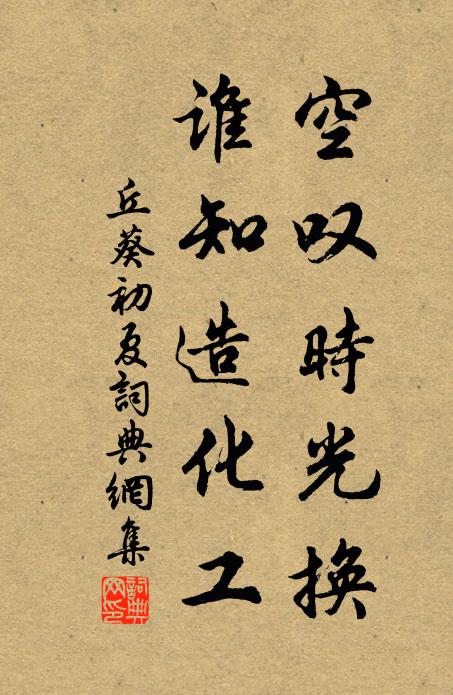 空叹時光換
谁知造化工
丘葵初夏詞典網集
詞典网印